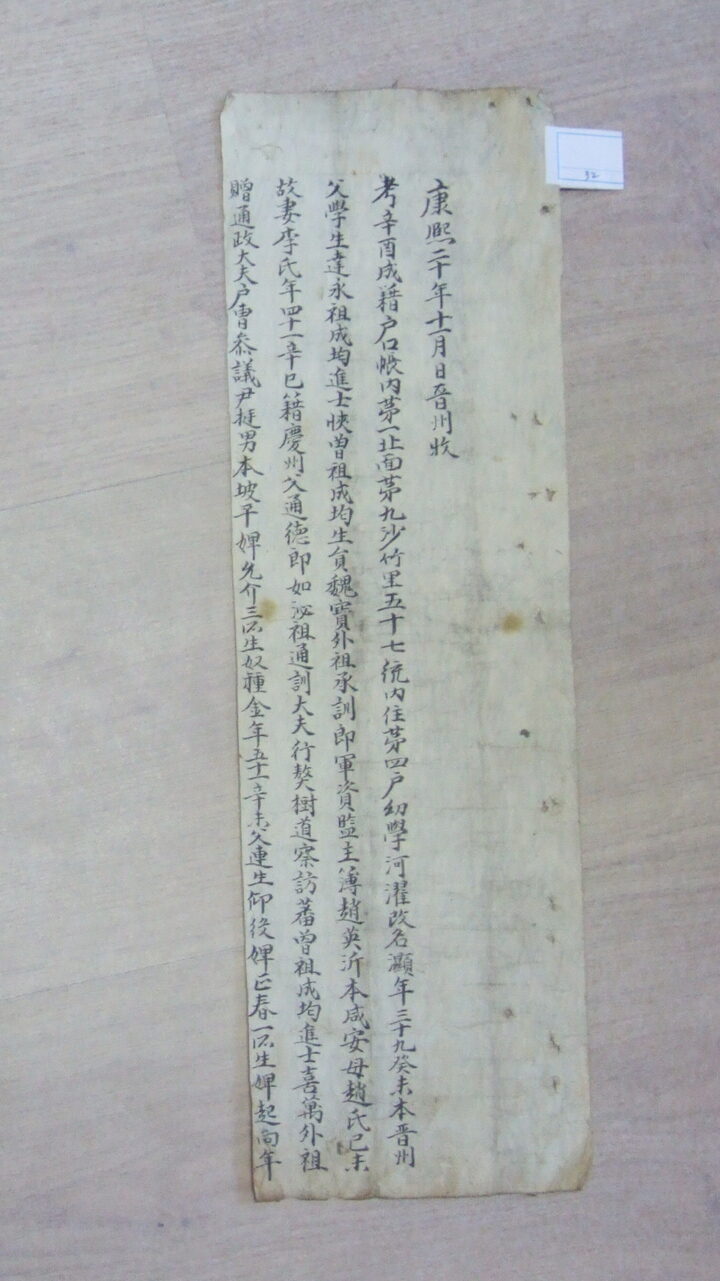 康熙二十年十一月日晉州牧
考辛酉成籍戶口帳內苐一北面苐九沙竹里五十七統內住苐四戶幼學河濯改名灝年三十九癸未本晉州
父學生達永祖成均進士悏曾祖成均生員魏寶外祖承訓郎軍資監主簿趙英沂本咸安母趙氏己未
故妻李氏年四十一辛巳籍慶州父通德郎如泌祖通訓大夫行獒樹道察訪蕃曾祖成均進士喜萬外祖
贈通政大夫戶曹叅議尹挺男本坡平婢允介三所生奴種金年五十一辛未父連生仰役婢正春一所生婢起向年
32